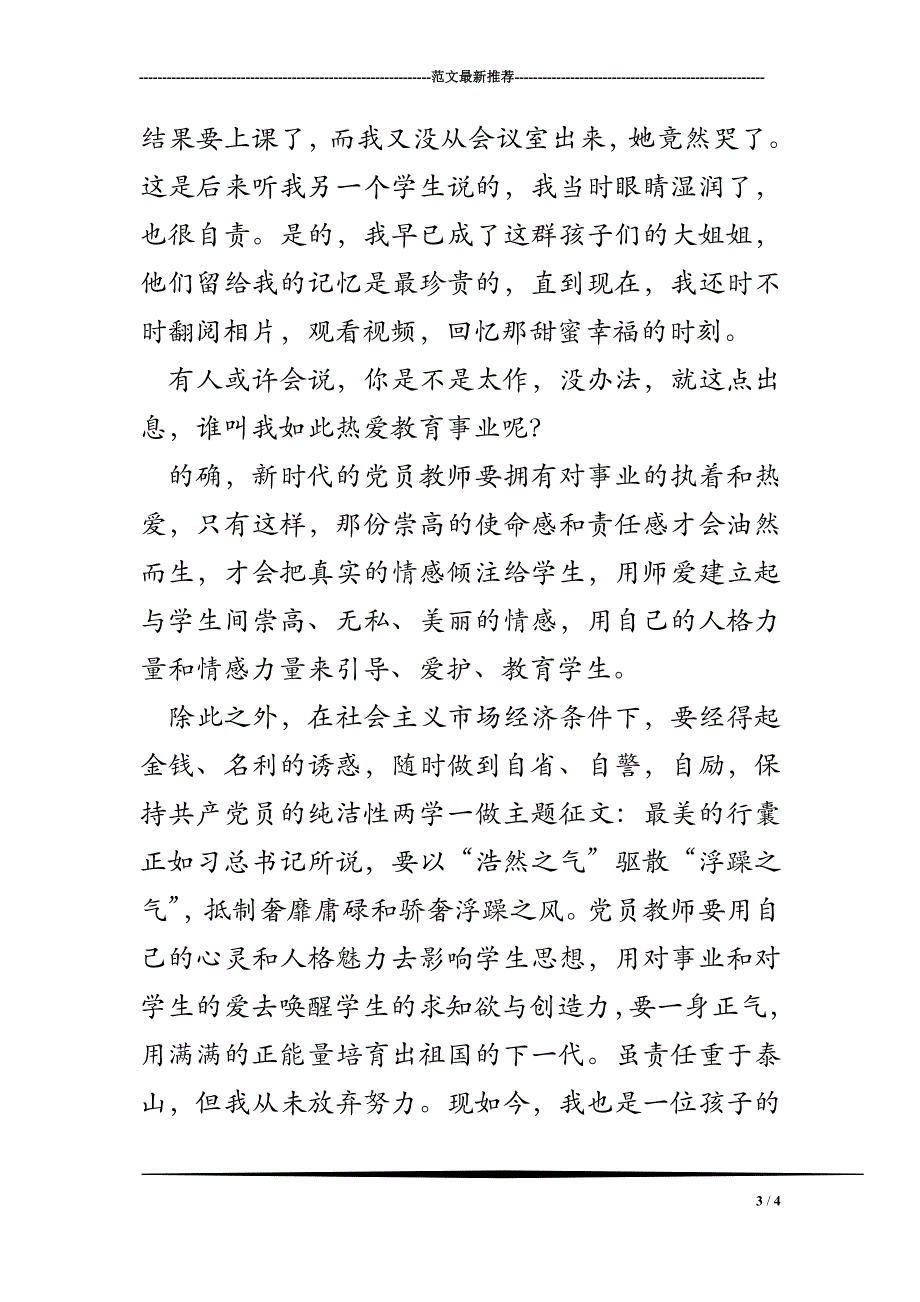 ---------------------------------------------------------------范文最新推荐------------------------------------------------------
结果要上课了，而我又没从会议室出来，她竟然哭了。
这是后来听我另一个学生说的，我当时眼睛湿润了，
也很自责。是的，我早已成了这群孩子们的大姐姐，
他们留给我的记忆是最珍贵的，直到现在，我还时不
时翻阅相片，观看视频，回忆那甜蜜幸福的时刻。
有人或许会说，你是不是太作，没办法，就这点出
息，谁叫我如此热爱教育事业呢？
的确，新时代的党员教师要拥有对事业的执着和热
爱，只有这样，那份崇高的使命感和责任感才会油然
而生，才会把真实的情感倾注给学生，用师爱建立起
与学生间崇高、无私、美丽的情感，用自己的人格力
量和情感力量来引导、爱护、教育学生。
除此之外，在社会主义市场经济条件下，要经得起
金钱、名利的诱惑，随时做到自省、自警，自励，保
持共产党员的纯洁性两学一做主题征文：最美的行囊
正如习总书记所说，要以“浩然之气”驱散“浮躁之
气”，抵制奢靡庸碌和骄奢浮躁之风。党员教师要用自
己的心灵和人格魅力去影响学生思想，用对事业和对
学生的爱去唤醒学生的求知欲与创造力，要一身正气，
用满满的正能量培育出祖国的下一代。虽责任重于泰
山，但我从未放弃努力。现如今，我也是一位孩子的
3 / 4